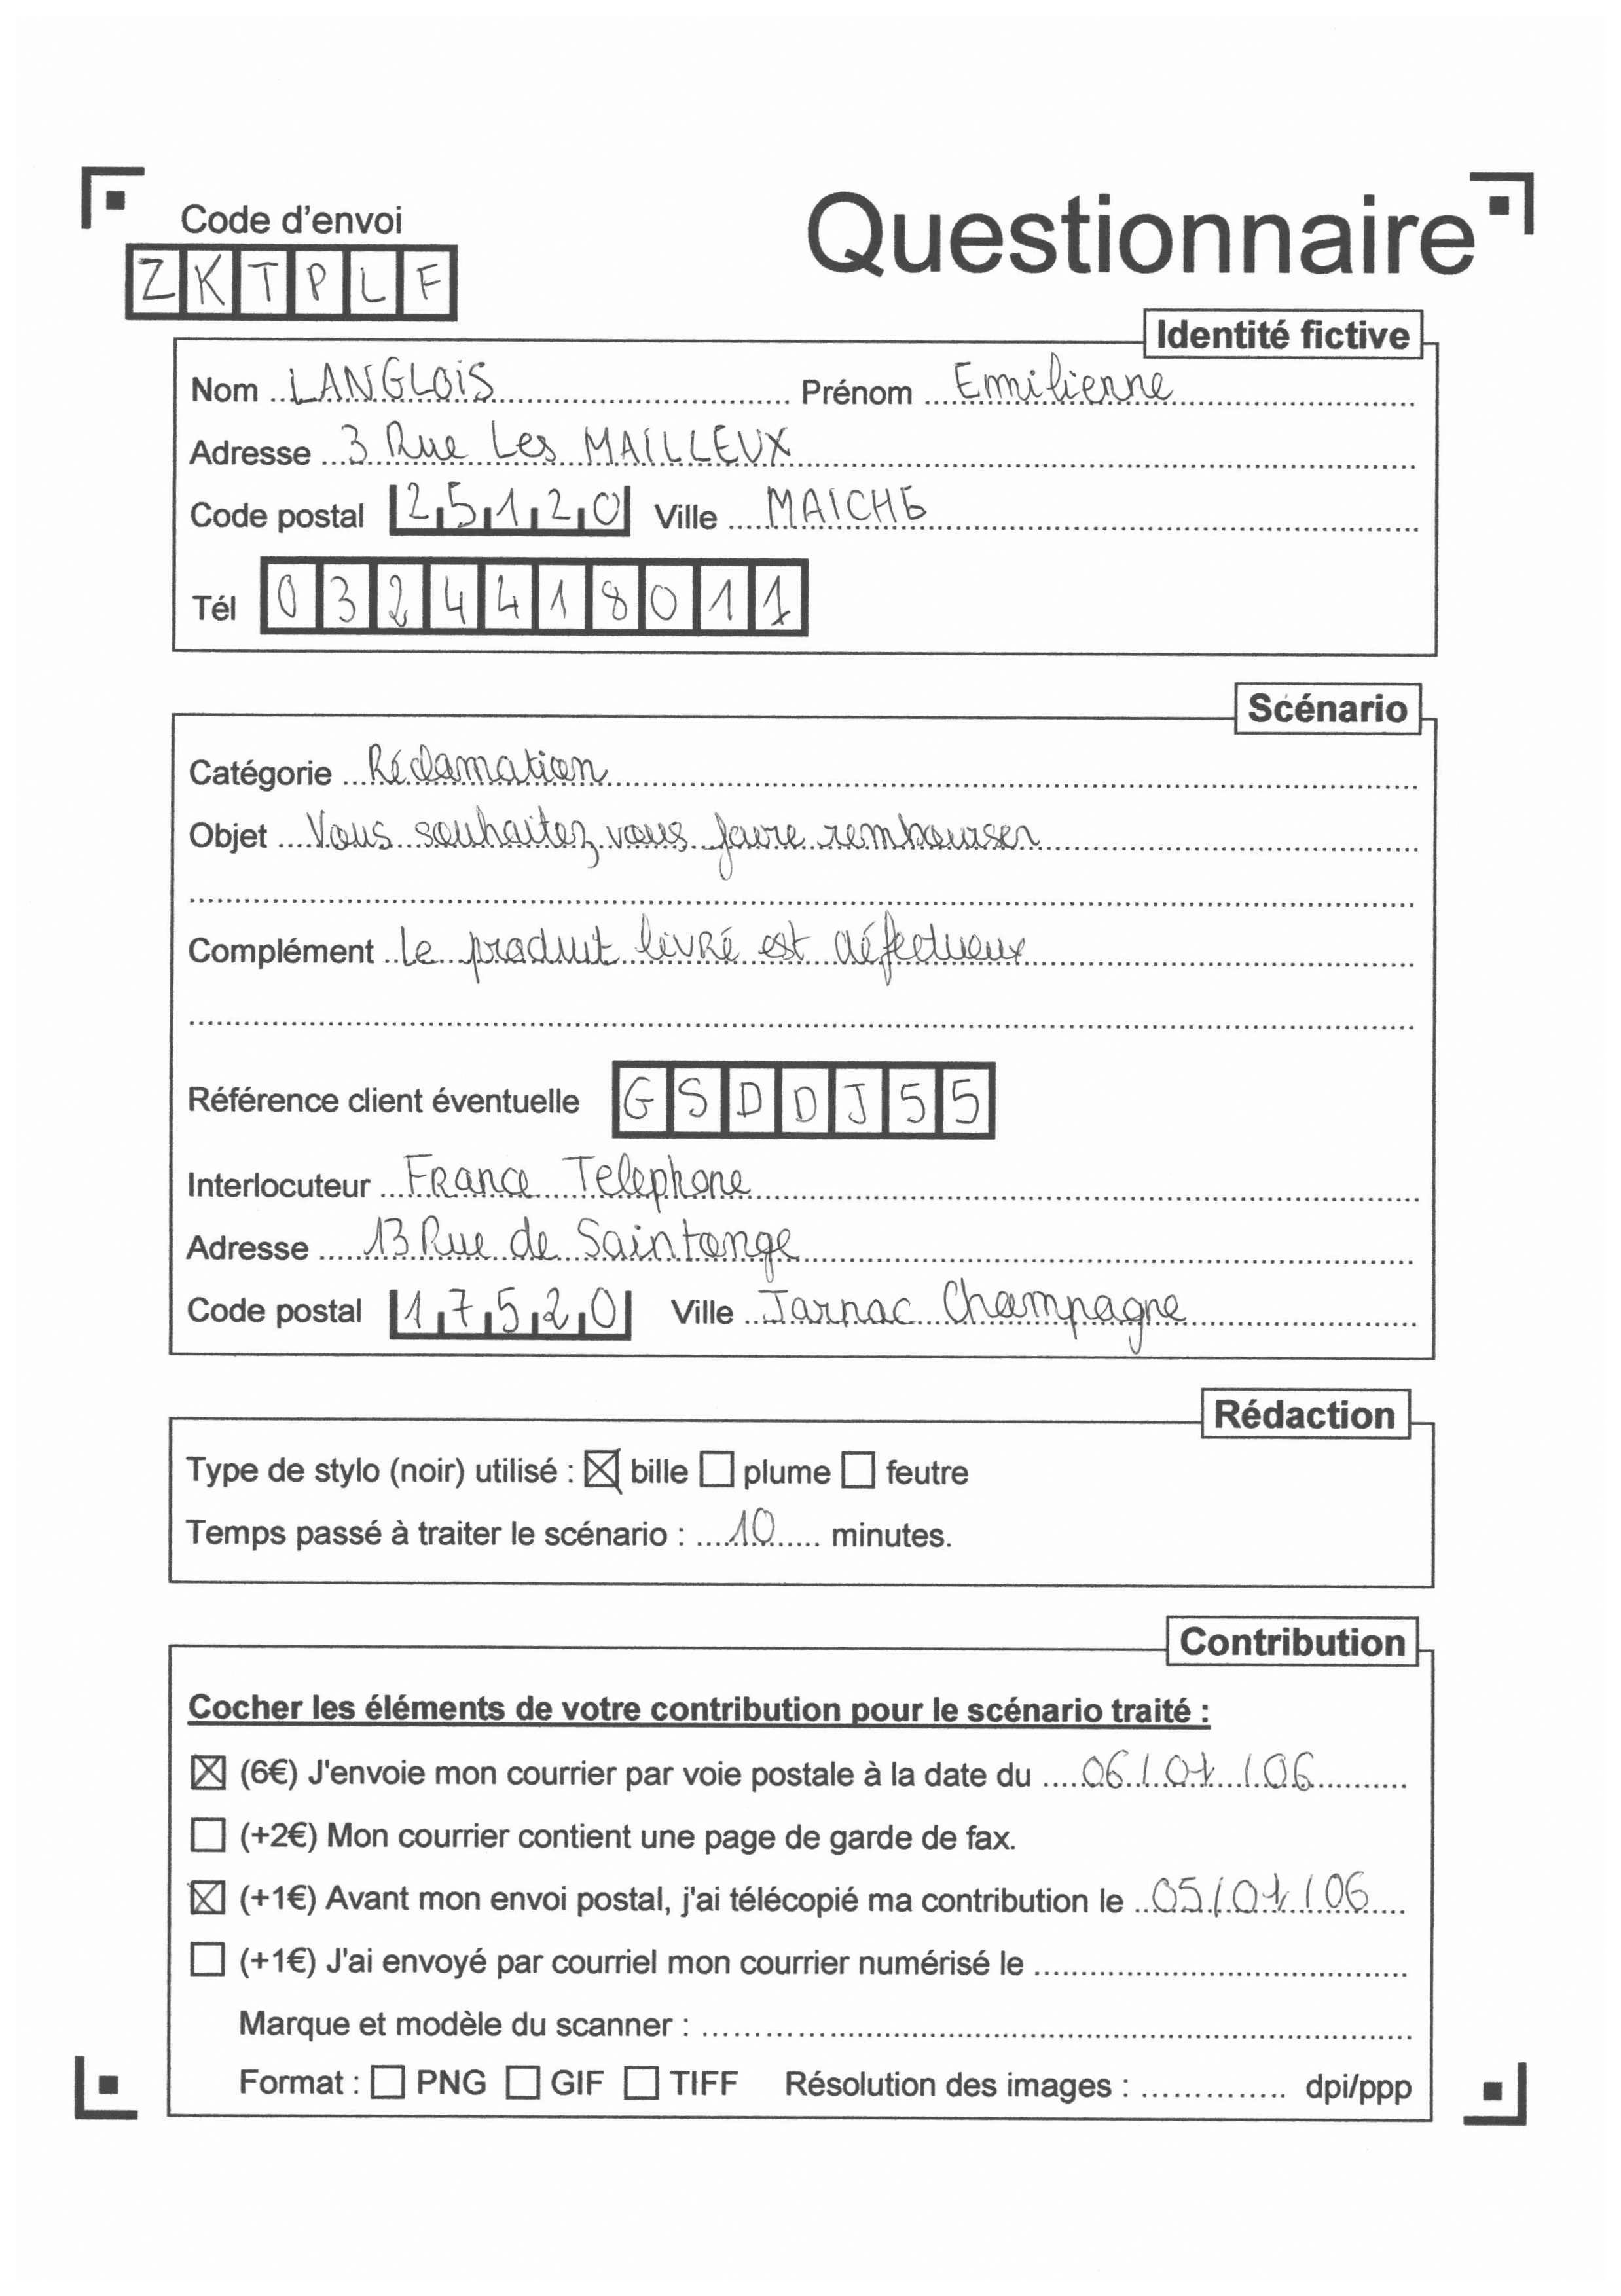 Code d'envoi
Questionnaire
Z K T P L F
Identité fictive
Nom LANGLOIS Prénom Emilienne
Adresse 3 Rue Les MAILLEUX
Code postal 25120 Ville MAICHE
Tél 0324418011
Scénario
Catégorie Réclamation
Objet Vous souhaitez vous faire rembourser
Complément Le produit livré est défectueux
Référence client éventuelle GSDDJ55
Interlocuteur France Telephone
Adresse 13 Rue de Saintonge
Code postal 17520 Ville Jarnac Champagne
Rédaction
Type de stylo (noir) utilisé : ☒ bille ☐ plume ☐ feutre
Temps passé à traiter le scénario : 10 minutes.
Contribution
Cocher les éléments de votre contribution pour le scénario traité :
☒ (6€) J'envoie mon courrier par voie postale à la date du 06/01/06
☐ (+2€) Mon courrier contient une page de garde de fax.
☒ (+1€) Avant mon envoi postal, j'ai télécopié ma contribution le 05/01/06
☐ (+1€) J'ai envoyé par courriel mon courrier numérisé le
Marque et modèle du scanner :
Format : ☐ PNG ☐ GIF ☐ TIFF Résolution des images : dpi/ppp